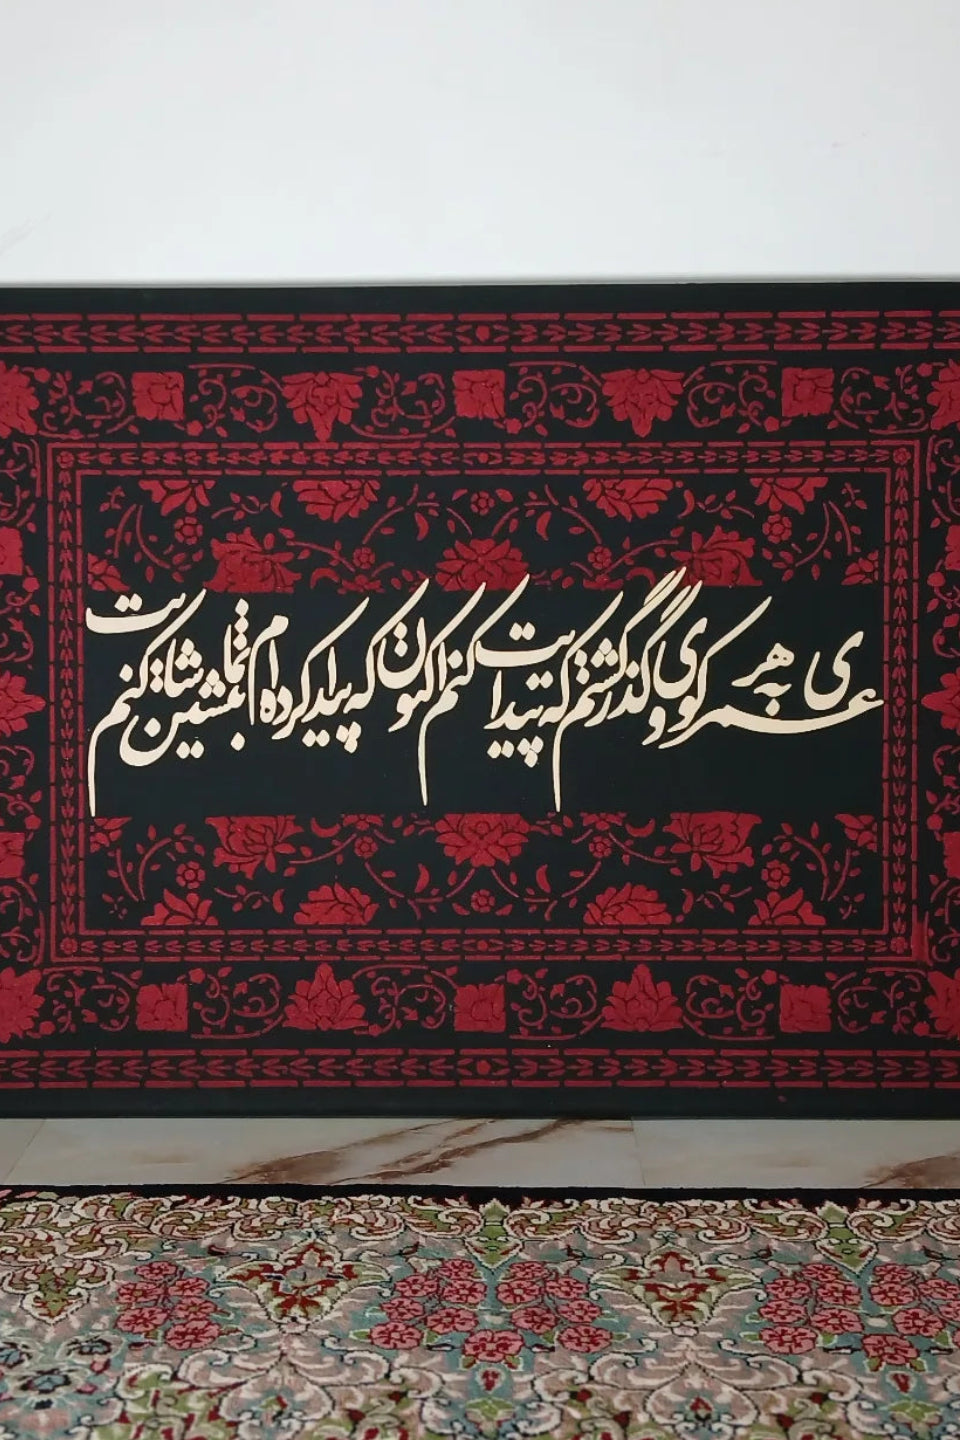 عمری به هر کوی و گذر گشتم که پیدایت کنم اکنون که پیدا کرده‌ام بنشین تماشایت کنم